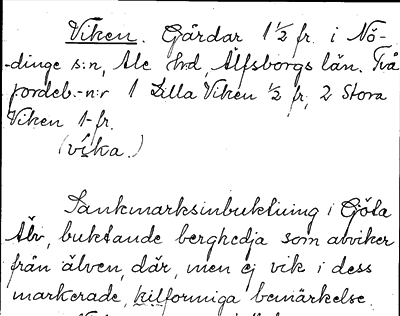 Viken. Gårdar 1 1/2 fr. i Nö-
-dinge s:n, Ale hrd, Älfsborgs län. Två
jordeb.-n:r 1 Lilla Viken 1/2 fr, 2 Stora
Viken 1 fr.
(vi̇̀ka.)
Sankmarksinbuktning i Göta
älv, buktande bergkedja som avviker
från älven, där, men ej vik i dess
markerade, kilformiga bemärkelse.